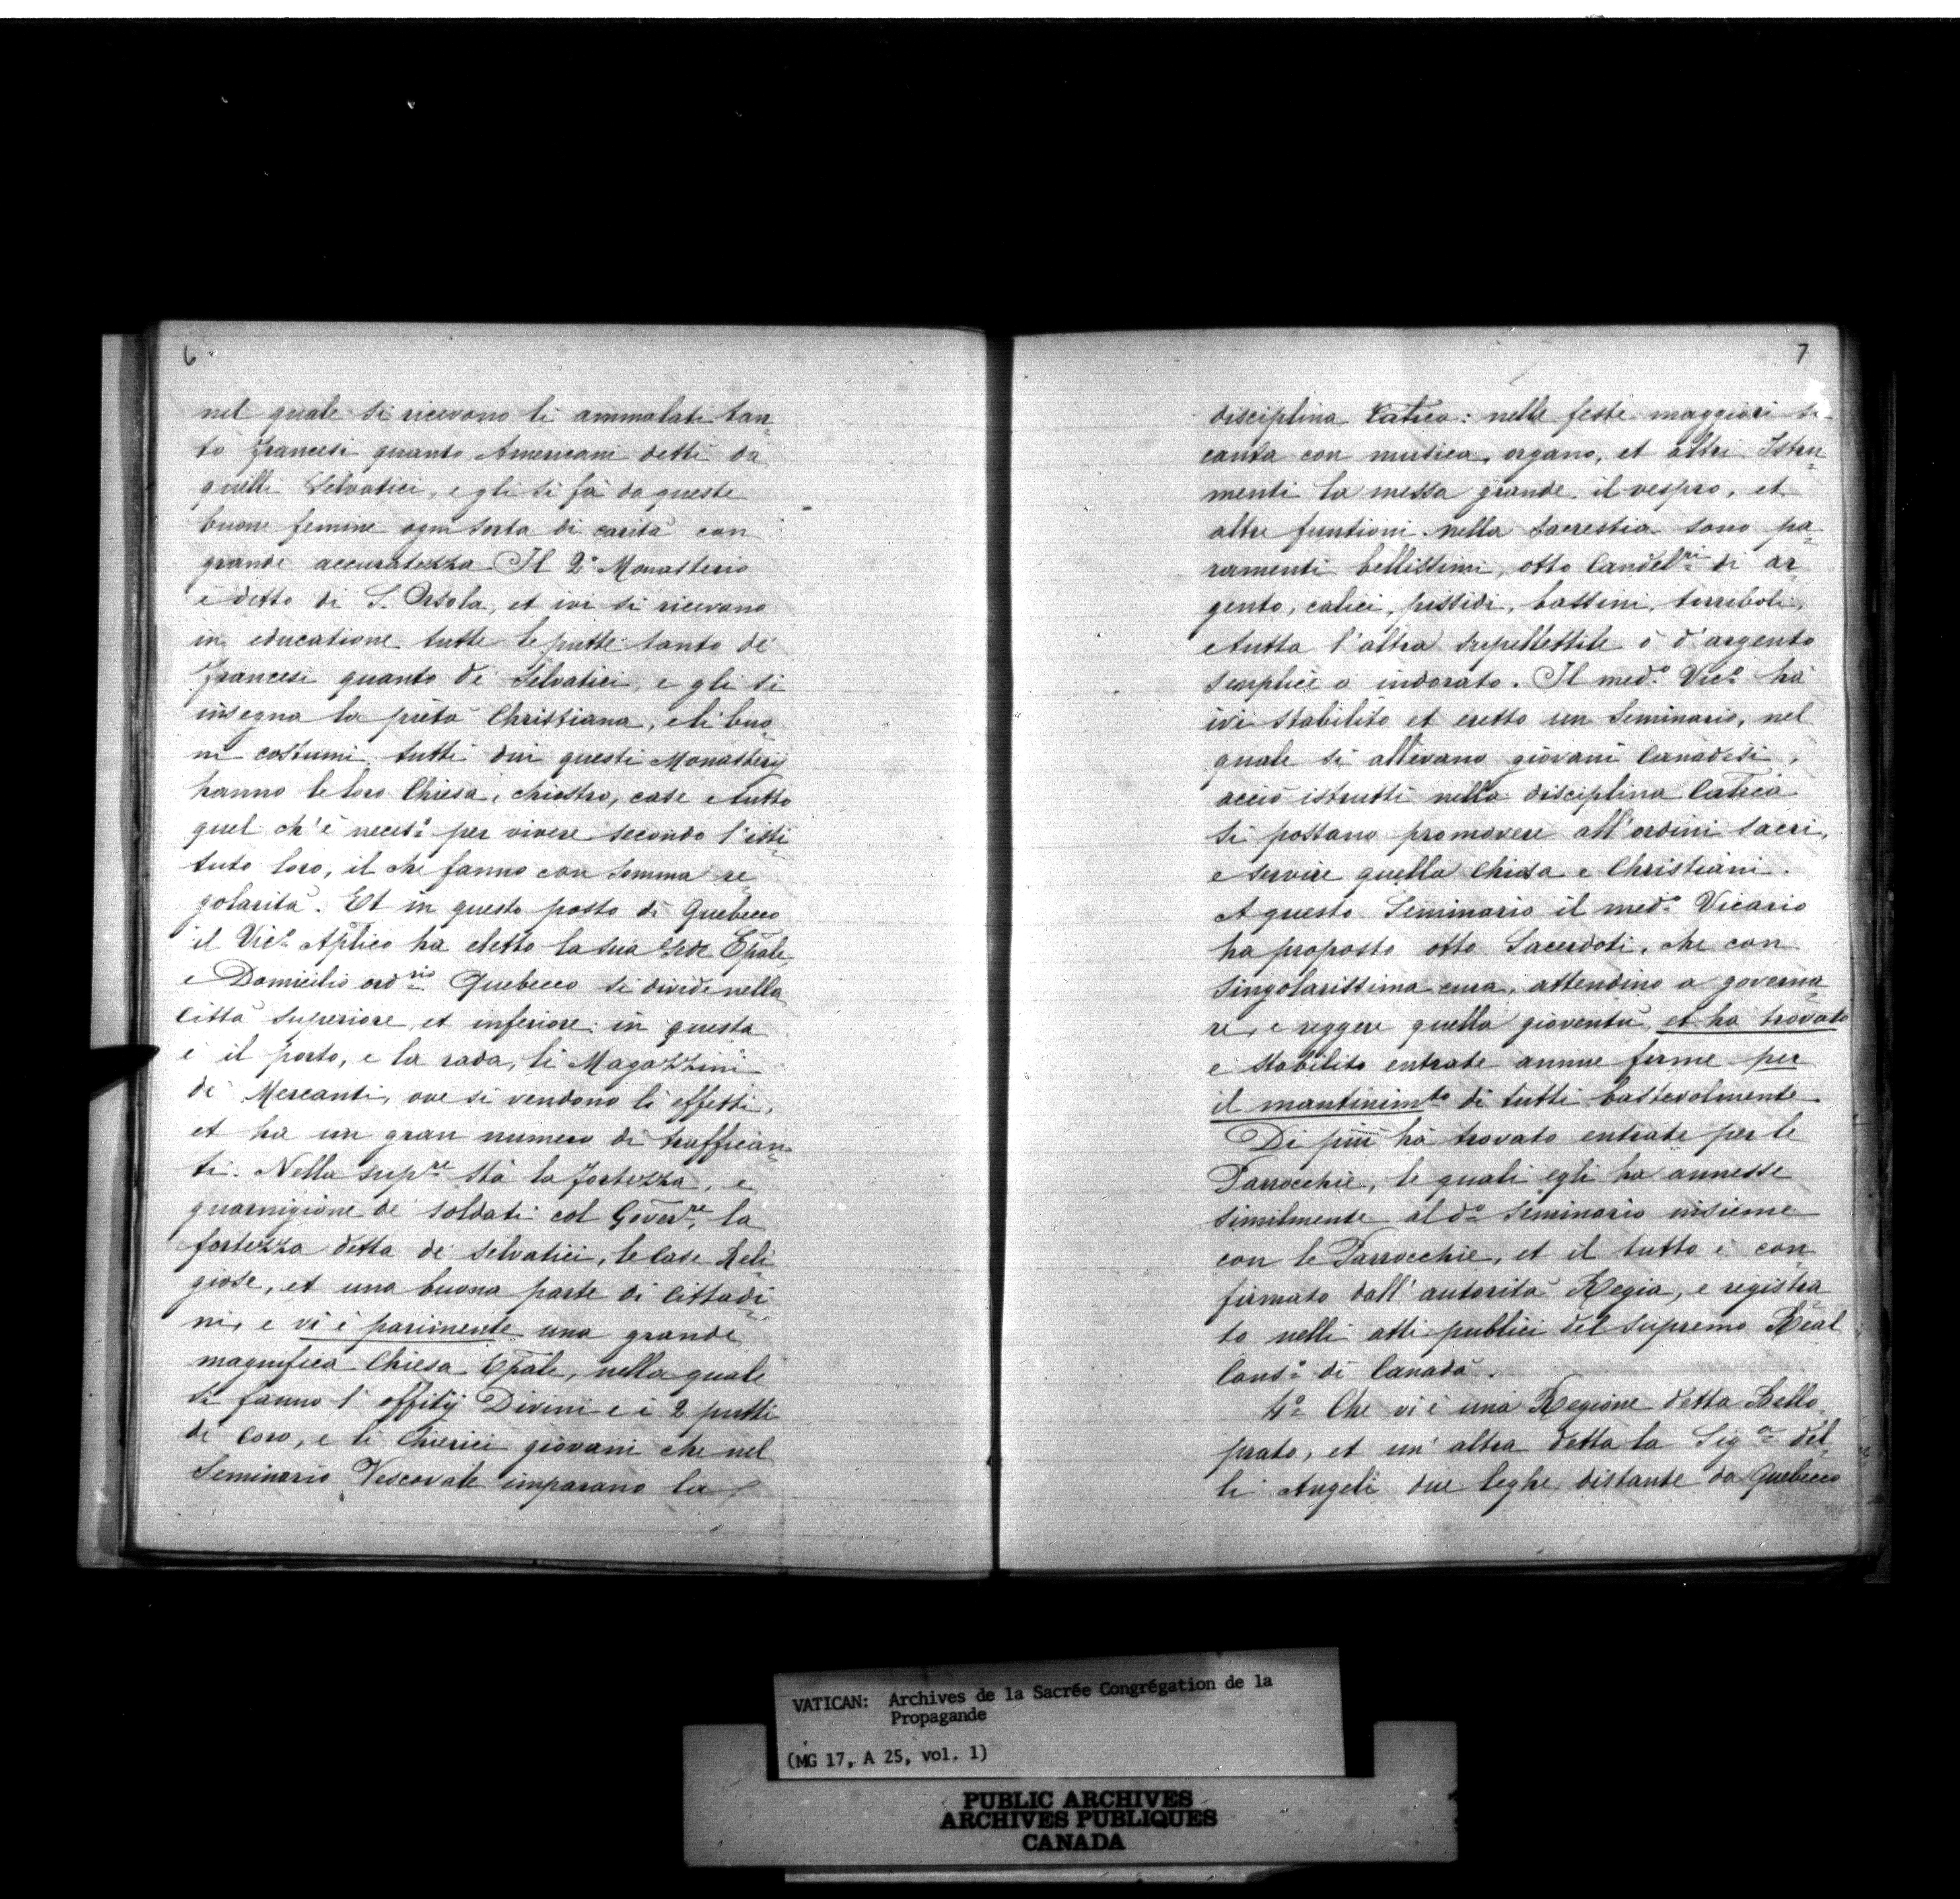 6
nel quale si ricevono li ammalati tan=
to francesi quanto Americani detti da
quelli Selvatici, e gli si fà da queste
buone femine ogni sorta di carità con
grande accuratezza. Il 2º Monasterio
è detto di S. Orsola, et ivi si ricevono
in educatione tutte le putte tanto de'
francesi quanto de' Selvatici, e gli si
insegna la pietà Christiana, e li buo=
ni costumi. tutti dui questi Monasterij
hanno le loro Chiesa, chiostro, case e tutto
quel ch'è necesº per vivere secondo l'isti=
tuto loro, il che fanno con somma re=
golarità. Et in questo posto di Quebecco
il Vicº Aplico ha eletto la sua sede Epale
e Domicilio ordrio Quebecco si divide nella
Città superiore, et inferiore: in questa
è il porto, e la rada, li Magazzini
de' Mercanti, ove si vendono li effetti,
et ha un gran numero di traffician=
ti. Nella supre stà la fortezza, e
guarnigione de' soldati col Goverre, la
fortezza detta de' selvatici, le Case Reli=
giose, et una buona parte di Cittadi=
ni, e vi è parimente una grande
magnifica Chiesa Epale, nella quale
si fanno l' offitij Divini e i 2 putti
di Coro, e li Chierici giovani che nel
Seminario Vescovale imparano la
7
disciplina Catica: nelle feste maggiori si
canta con musica, organo, et altri Istru=
menti la messa grande, il vespro, et
altre funtioni. nella sacrestia sono pa=
ramenti bellissimi, otto Candelri di ar=
gento, calici, pissidi, bassini, turriboli,
e tutta l'altra supellettile o d'argento
semplice o indorato. Il medº Vicº hà
ivi stabilito et eretto un Seminario, nel
quale si allevano giovani Canadesi,
acciò istrutti nella disciplina Catica
si possano promovere all'ordini sacri,
e servire quella Chiesa e Christiani.
A questo Seminario il medº Vicario
ha proposto otto Sacerdoti, che con
singolarissima cura, attendino a governa=
re, e reggere quella gioventù, et ha trovato
e stabilito entrate annue ferme per
il mantinimto di tutti bastevolmente.
Di più hà trovato entrate per le
Parrocchie, le quali egli ha annesse
similmente al dº Seminario insieme
con le Parrocchie, et il tutto è con=
firmato dall' autorità Regia, e registra=
to nelli atti publici del supremo Real
Consº di Canadà.
4º Che vi è una Regione detta Bello=
prato, et un' altra detta la Sigra del=
li Angeli due leghe distante da Quebecco
VATICAN: Archives de la Sacrée Congrégation de la
Propagande
(MG 17, A 25, vol. 1)
PUBLIC ARCHIVES
ARCHIVES PUBLIQUES
CANADA